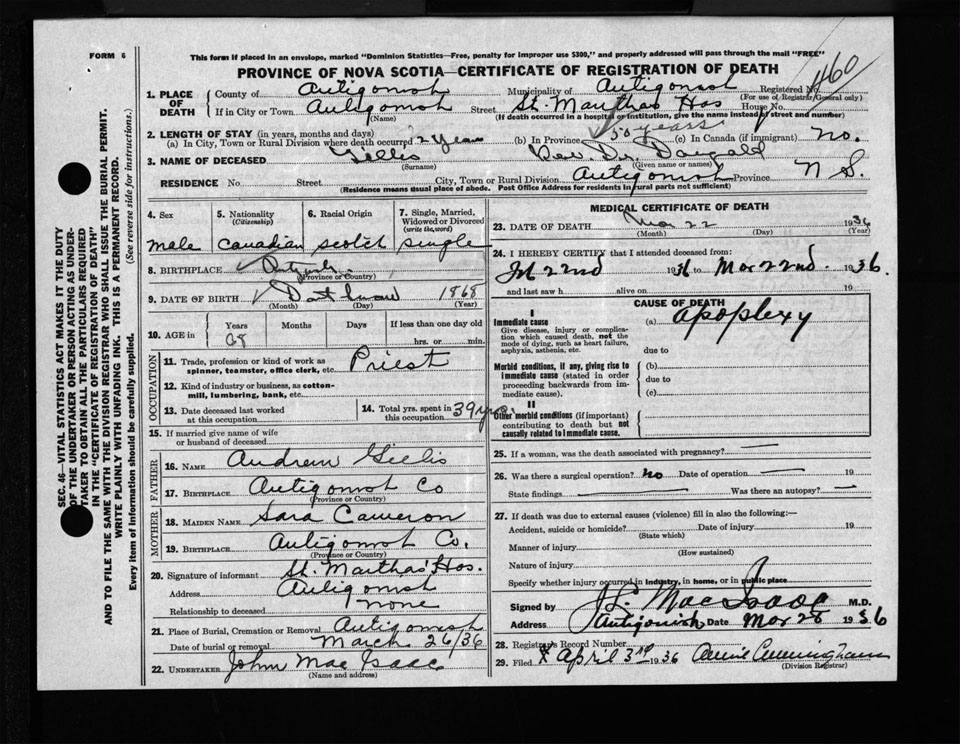 FORM 6
This form if placed in an envelope, marked "Dominion Statistics—Free, penalty for improper use $300," and properly addressed will pass through the mail "FREE"
PROVINCE OF NOVA SCOTIA—CERTIFICATE OF REGISTRATION OF DEATH
1. PLACE OF DEATH
County of Antigonish Municipality of Antigonish Registered No. 460
(For use of Registrar General only)
If in City or Town Antigonish Street St. Marthas Hos House No.
(Name) (If death occurred in a hospital or institution, give the name instead of street and number)
2. LENGTH OF STAY (in years, months and days)
(a) In City, Town or Rural Division where death occurred 2 Years (b) In Province 50 years (c) In Canada (if immigrant) no.
3. NAME OF DECEASED Gillis Rev. Dr. Donald
(Surname) (Given name or names)
RESIDENCE No. Street City, Town or Rural Division Antigonish Province N S.
(Residence means usual place of abode. Post Office Address for residents in rural parts not sufficient)
SEC. 46—VITAL STATISTICS ACT MAKES IT THE DUTY
OF THE UNDERTAKER OR PERSON ACTING AS UNDER-
TAKER TO OBTAIN ALL THE PARTICULARS REQUIRED
IN THE "CERTIFICATE OF REGISTRATION OF DEATH"
AND TO FILE THE SAME WITH THE DIVISION REGISTRAR WHO SHALL ISSUE THE BURIAL PERMIT.
WRITE PLAINLY WITH UNFADING INK. THIS IS A PERMANENT RECORD.
Every item of Information should be carefully supplied. (See reverse side for instructions.)
4. Sex 5. Nationality (Citizenship) 6. Racial Origin 7. Single, Married, Widowed or Divorced (write the word)
male Canadian Scotch single
8. BIRTHPLACE
(Province or Country)
9. DATE OF BIRTH Dont know 1868
(Month) (Day) (Year)
10. AGE in Years Months Days If less than one day old
68 hrs. or min.
OCCUPATION
11. Trade, profession or kind of work as spinner, teamster, office clerk, etc. Priest
12. Kind of industry or business, as cotton-mill, lumbering, bank, etc.
13. Date deceased last worked at this occupation
14. Total yrs. spent in this occupation 39 yrs.
15. If married give name of wife or husband of deceased
FATHER
16. NAME Andrew Gillis
17. BIRTHPLACE Antigonish Co
(Province or Country)
MOTHER
18. MAIDEN NAME Sara Cameron
19. BIRTHPLACE Antigonish Co.
(Province or Country)
20. Signature of informant St. Marthas Hos.
Address Antigonish
Relationship to deceased none
21. Place of Burial, Cremation or Removal Antigonish
Date of burial or removal March 26/36
22. UNDERTAKER John Mac Isaac
(Name and address)
MEDICAL CERTIFICATE OF DEATH
23. DATE OF DEATH Mar 22 1936
(Month) (Day) (Year)
24. I HEREBY CERTIFY that I attended deceased from:
22nd 1936 to Mar 22nd 1936.
and last saw h alive on 19
CAUSE OF DEATH
I
Immediate cause (a) apoplexy
Give disease, injury or complication which caused death, not the mode of dying, such as heart failure, asphyxia, asthenia, etc.
due to
Morbid conditions, if any, giving rise to immediate cause (stated in order proceeding backwards from immediate cause).
(b)
due to
(c)
II
Other morbid conditions (if important) contributing to death but not causally related to immediate cause.
25. If a woman, was the death associated with pregnancy? —
26. Was there a surgical operation? no Date of operation — 19
State findings — Was there an autopsy? —
27. If death was due to external causes (violence) fill in also the following:—
Accident, suicide or homicide? Date of injury 19
(State which)
Manner of injury
(How sustained)
Nature of injury
Specify whether injury occurred in industry, in home, or in public place
Signed by MacIsaac M.D.
Address Antigonish Date Mar 28 1936
28. Registrar's Record Number
29. Filed April 3rd 1936 Annie Cunningham
(Division Registrar)